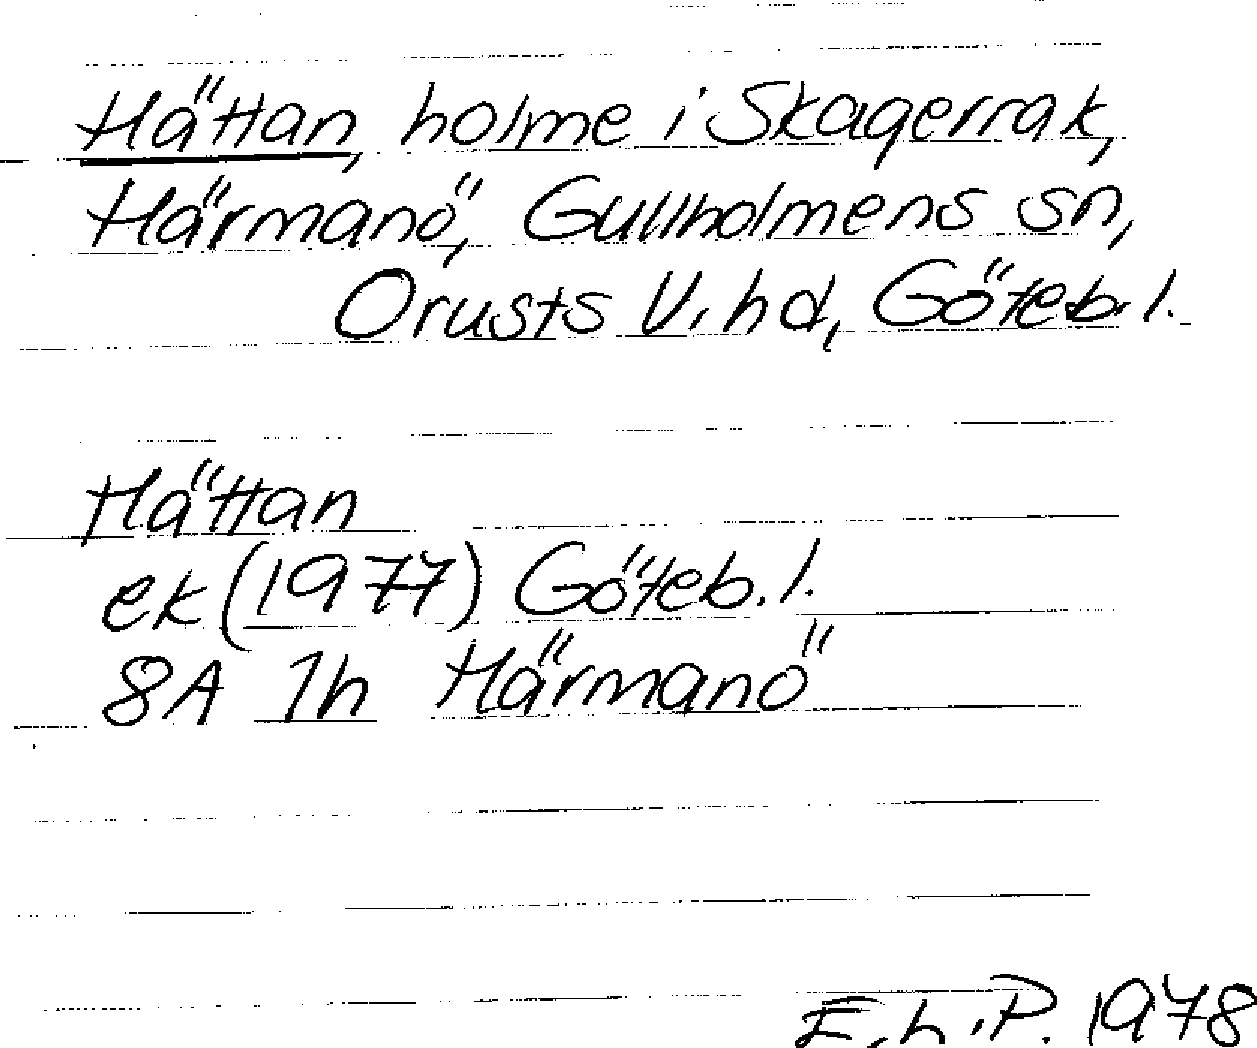 Hättan, holme i Skagerrak,
Härmanö, Gullholmens sn,
Orusts V. hd, Göteb. l.
Hättan
ek (1977) Göteb. l.
8A 1h Härmanö
E.L.P. 1978